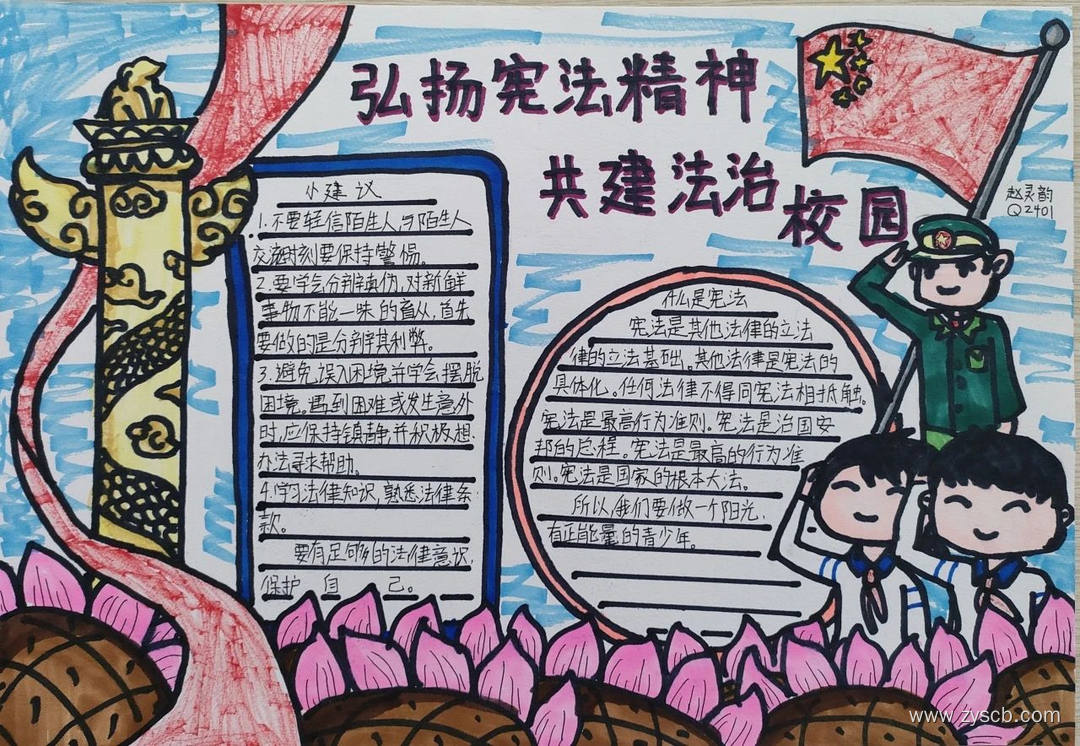 弘扬宪法精神
共建法治校园
赵灵韵
Q2401
小建议
1.不要轻信陌生人,与陌生人
交流时刻要保持警惕。
2.要学会分辨真伪,对新鲜
事物不能一味的盲从,首先
要做的是分辨其利弊。
3.避免误入困境并学会摆脱
困境。遇到困难或发生意外
时,应保持镇静,并积极想
办法寻求帮助。
4.学习法律知识,熟悉法律条
款。
要有足够的法律意识,
保护自己。
什么是宪法
宪法是其他法律的立法
律的立法基础。其他法律是宪法的
具体化。任何法律不得同宪法相抵触。
宪法是最高行为准则。宪法是治国安
邦的总程。宪法是最高的行为准
则。宪法是国家的根本大法。
所以,我们要做一个阳光,
有正能量的青少年。
www.zyscb.com